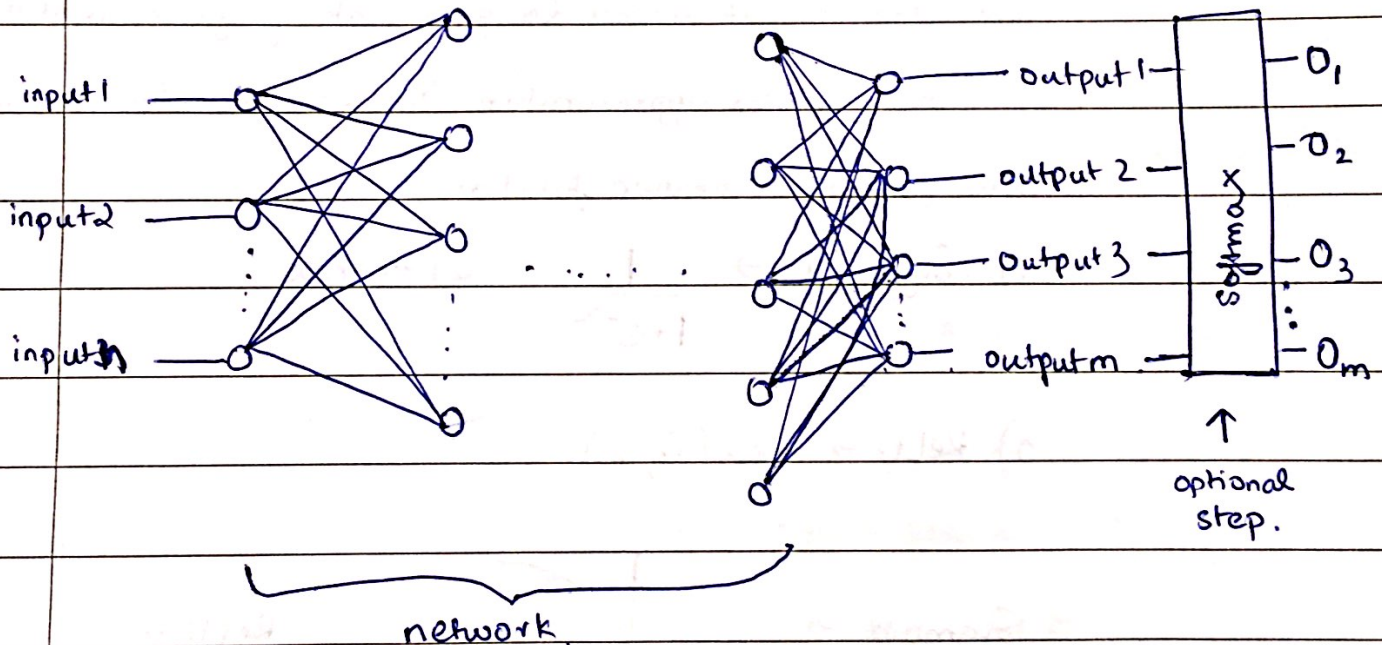 input1
input2
input n
output 1
output 2
output 3
output m
softmax
O1
O2
O3
Om
optional
step.
network